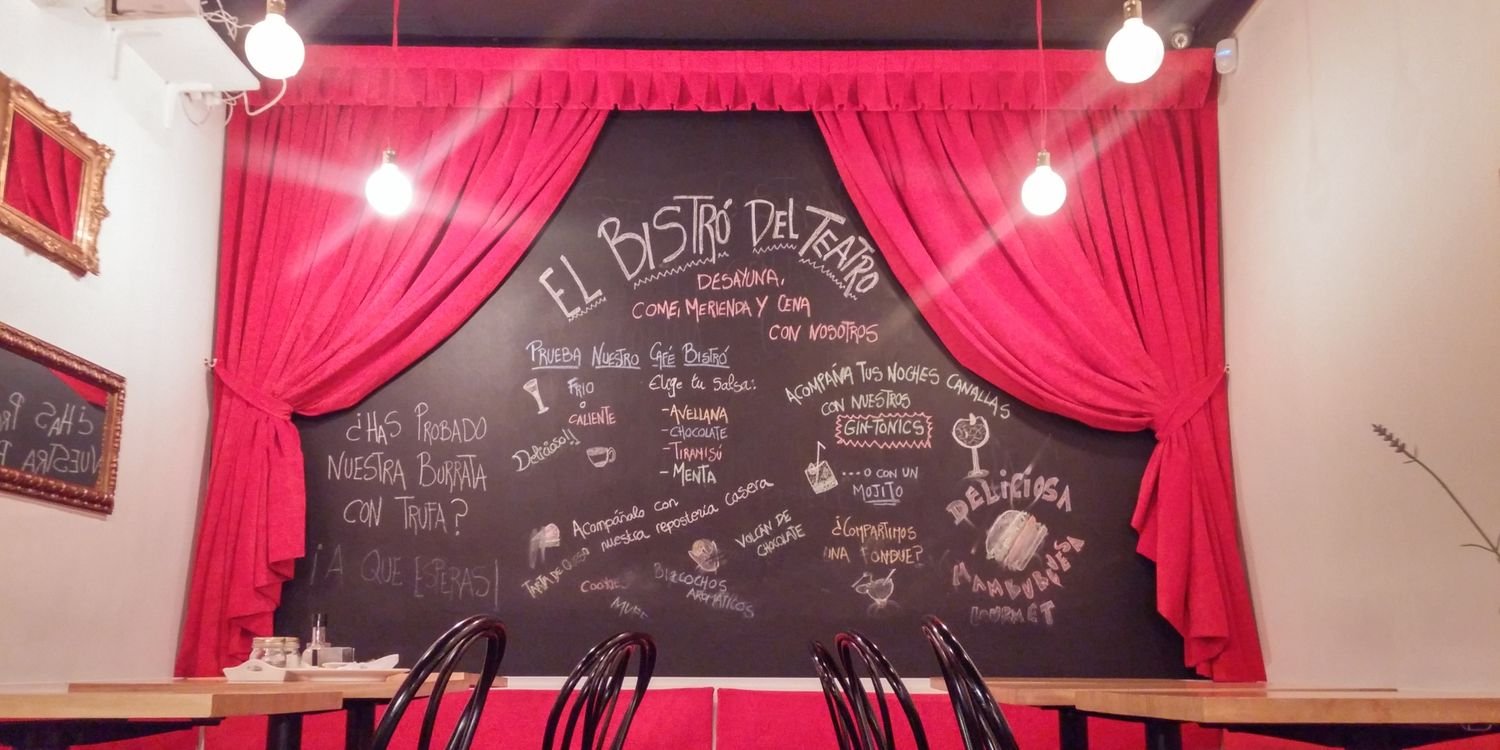 EL BISTRÓ DEL TEATRO
DESAYUNA,
COME, MERIENDA Y CENA
CON NOSOTROS
PRUEBA NUESTRO CAFÉ BISTRÓ
FRIO
O
CALIENTE
Delicioso!!
Elige tu salsa:
-AVELLANA
-CHOCOLATE
-TIRAMISÚ
-MENTA
Acompáñalo con
nuestra repostería casera
TARTA DE QUESO
COOKIES
BIZCOCHOS
AROMÁTICOS
VOLCÁN DE
CHOCOLATE
¿HAS PROBADO
NUESTRA BURRATA
CON TRUFA?
¡A QUE ESPERAS!
ACOMPAÑA TUS NOCHES CANALLAS
CON NUESTROS
GIN-TONICS
....O CON UN
MOJITO
¿COMPARTIMOS
UNA FONDUE?
DELICIOSA
HAMBURGUESA
GOURMET
¿HAS PR
NUESTRA B